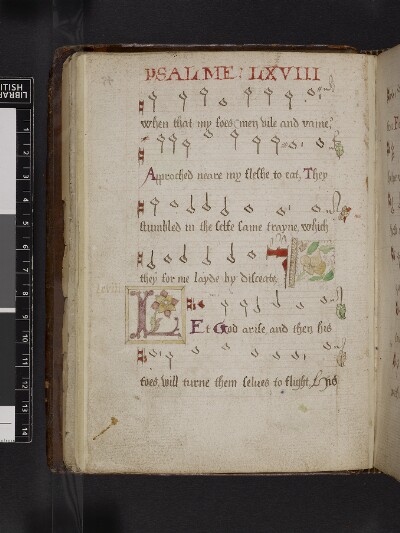 PSALME: LXVIII
when that my foes, men vile and vaine,
Approched neare my fleshe to eat, They
stumbled in the selfe same trayne, which
they for me layde by disceate.
LEt God arise, and then his
foes, will turne them selues to flight, His
1
2
3
4
5
6
7
8
9
10
11
12
13
14